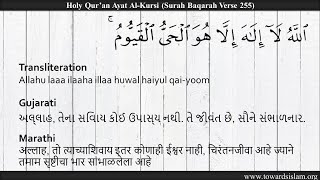 Holy Qur'an Ayat Al-Kursi (Surah Baqarah Verse 255)
ٱللَّهُ لَآ إِلَـٰهَ إِلَّا هُوَ ٱلْحَىُّ ٱلْقَيُّومُ ۚ
Transliteration
Allahu laaa ilaaha illaa huwal haiyul qai-yoom
Gujarati
અલ્લાહ, તેના સવિાય કોઈ ઉપાસ્ય નથી. તે જીવંત છે, સૌને સંભાળનાર.
Marathi
अल्लाह, तो त्याच्याशिवाय इतर कोणाही ईश्वर नाही, चिरंतनजीवा आहे ज्याने
तमाम सृष्टीचा भार सांभाळलेला आहे
www.towardsislam.org